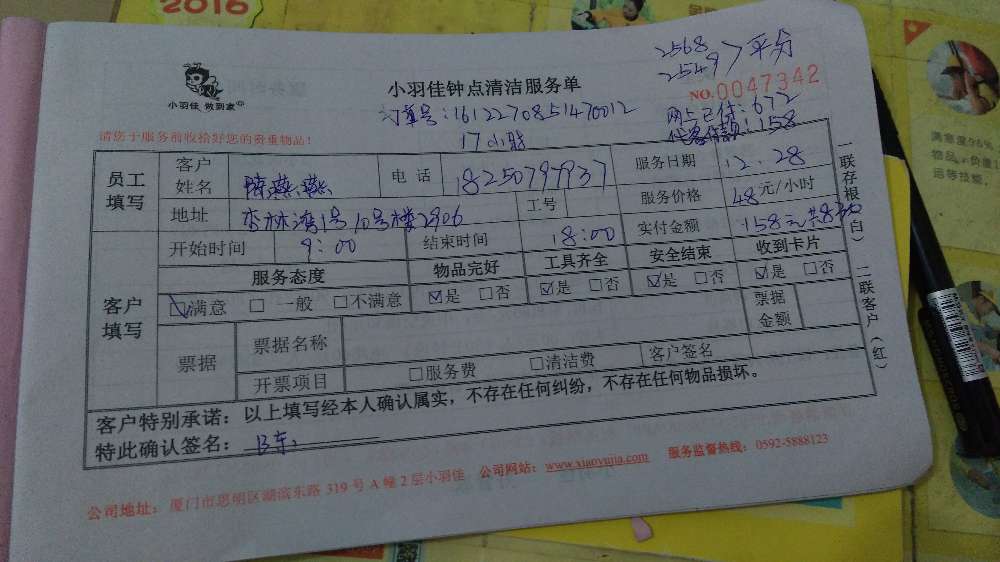 2016
2568
2549 > 平分
小羽佳 做到家
小羽佳钟点清洁服务单
NO.0047342
订单号：1612270851470012
网上已付：672
17小时
158
请您于服务前收拾好您的贵重物品！
员工填写
客户姓名 陈燕燕
电话 18250797937
服务日期 12.28
地址 杏林湾1号10号楼2906
工号
服务价格 48元/小时
开始时间 9：00
结束时间 18:00
实付金额 158元共830
客户填写
服务态度 物品完好 工具齐全 安全结束 收到卡片
☑满意 □一般 □不满意 ☑是 □否 ☑是 □否 ☑是 □否 ☑是 □否
票据
票据名称
票据金额
开票项目 □服务费 □清洁费 客户签名
客户特别承诺：以上填写经本人确认属实，不存在任何纠纷，不存在任何物品损坏。
特此确认签名：
公司地址：厦门市思明区湖滨东路 319 号 A 幢 2 层小羽佳 公司网站：www.xiaoyujia.com 服务监督热线：0592-5888123
一联存根（白） 二联客户（红）
满意度98%